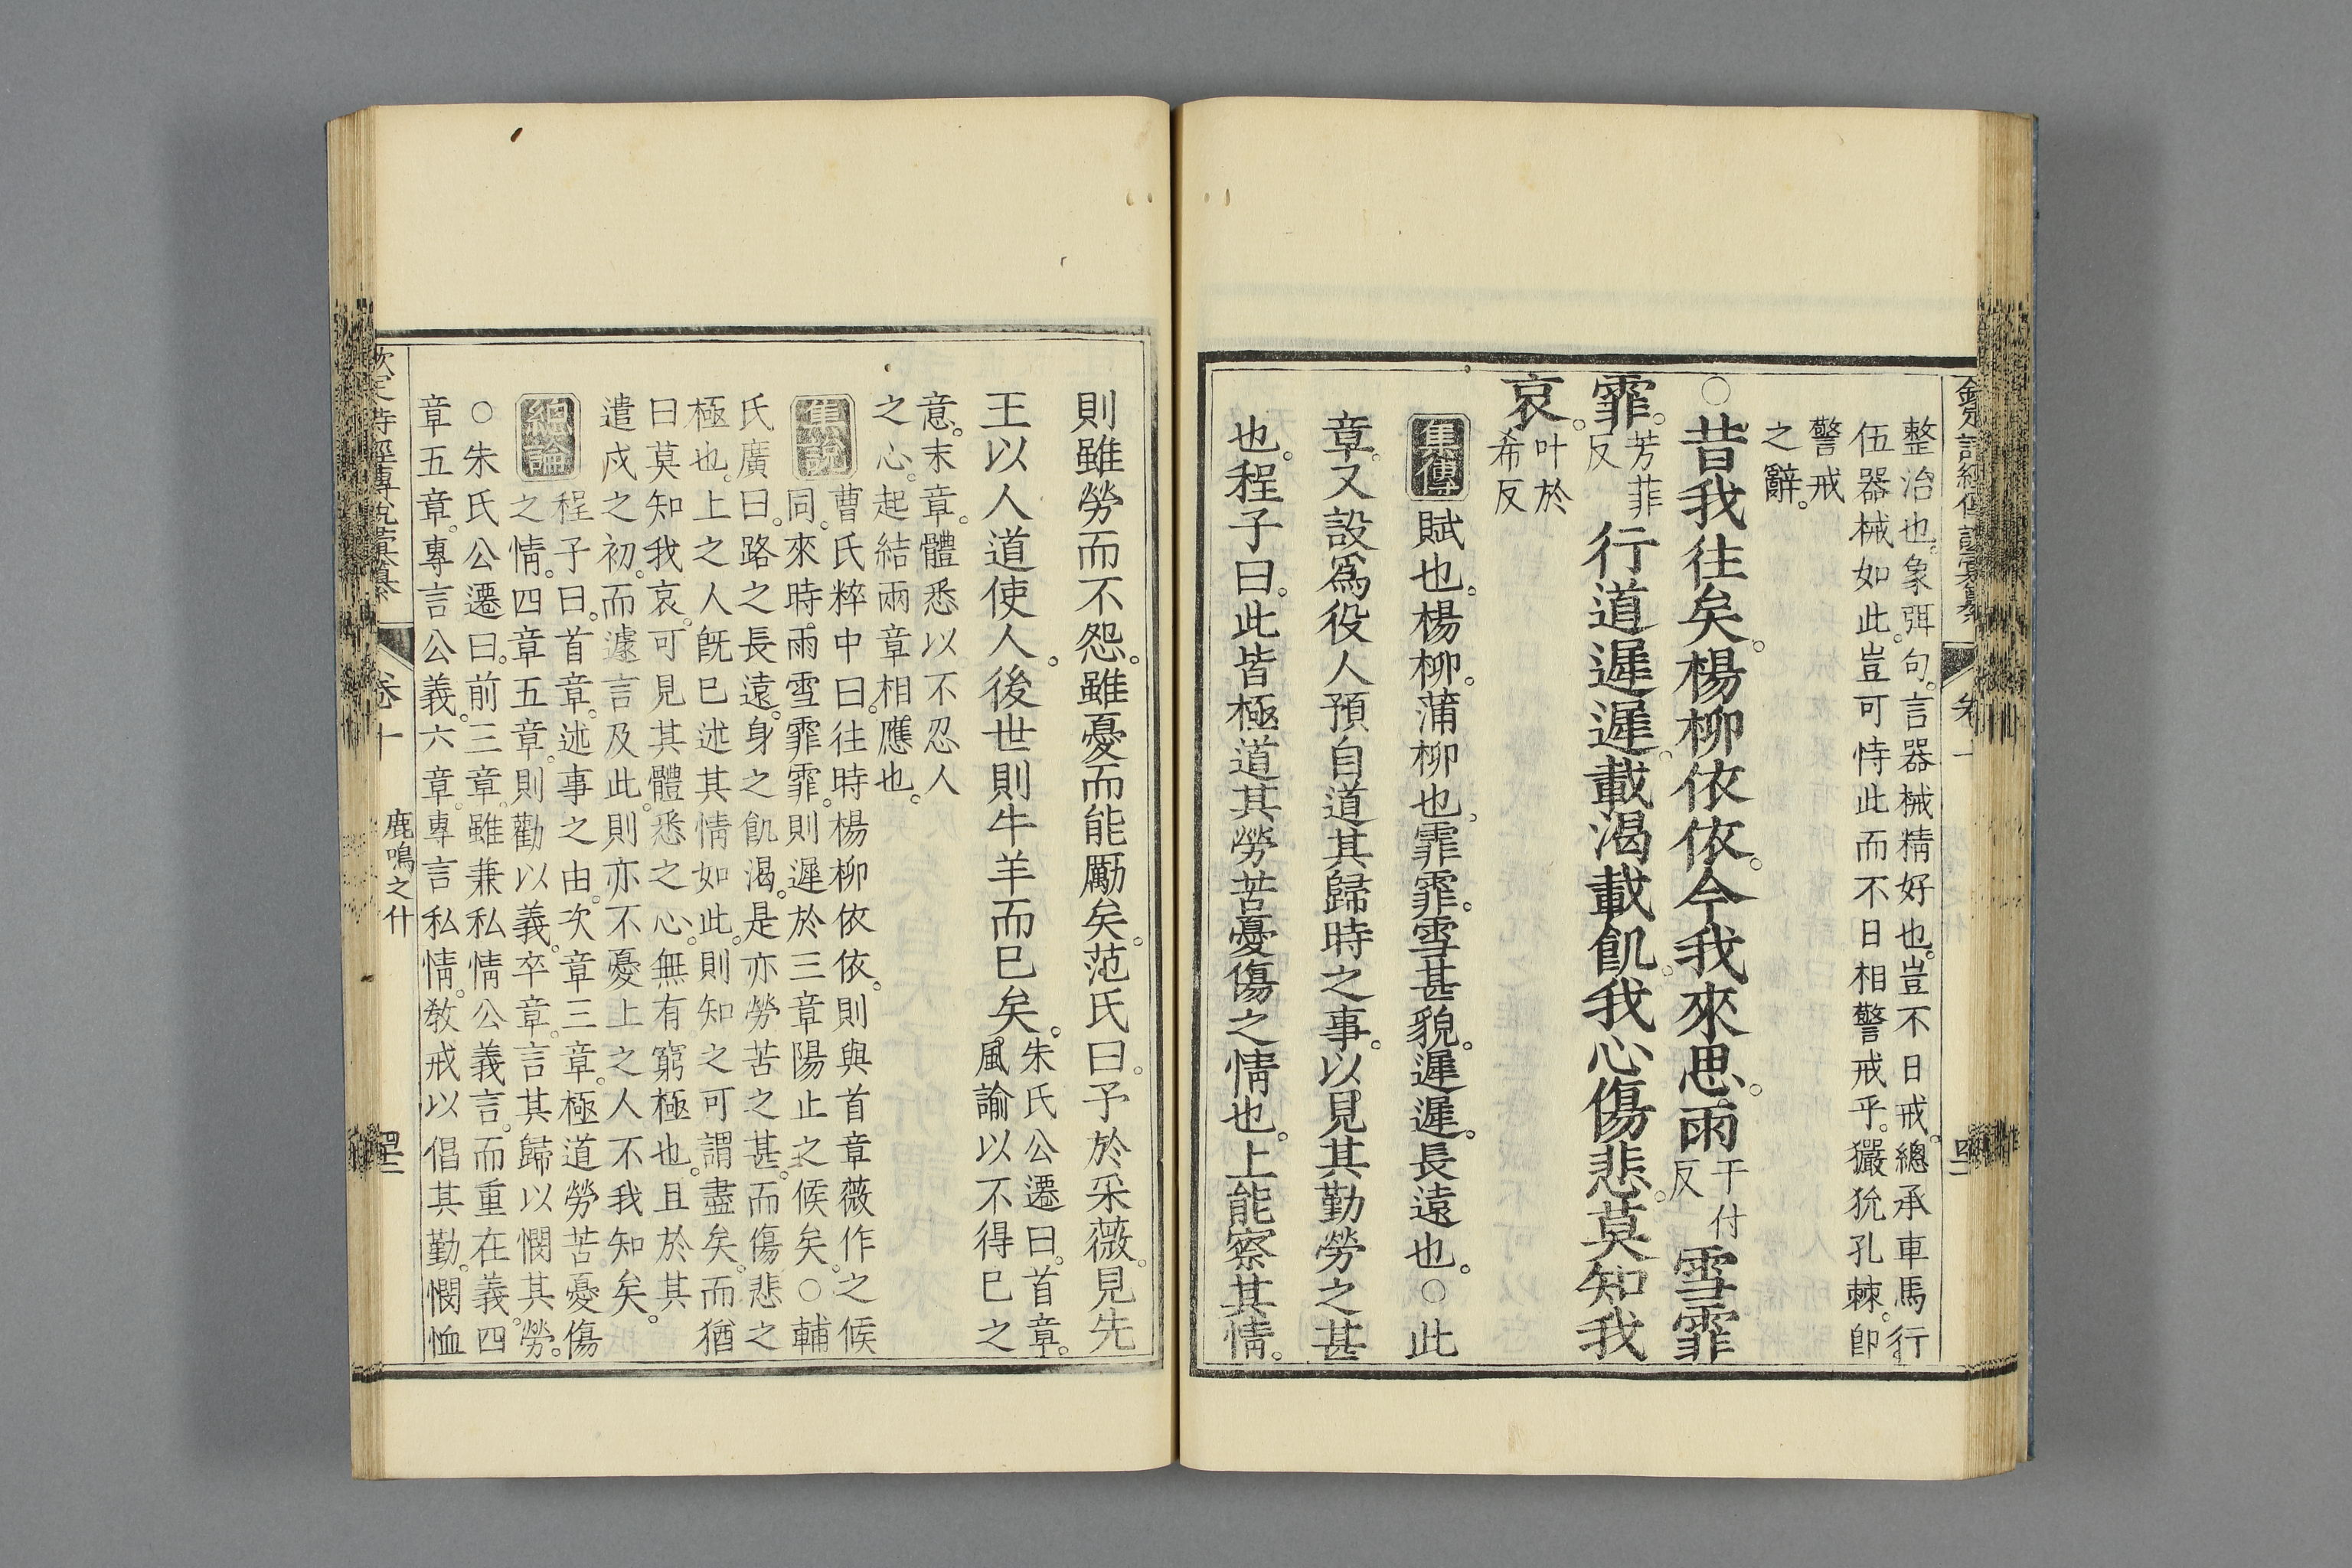 整治也。象弭句。言器械精好也。豈不日戒。總承車馬行
伍器械如此。豈可恃此而不日相警戒乎。玁狁孔棘。卽
警戒
之辭。
○昔我往矣。楊柳依依。今我來思。雨
于付
反
雪霏
霏。
芳菲
反
行道遲遲。載渴載飢。我心傷悲。莫知我
哀。
叶於
希反
集傳
賦也。楊柳。蒲柳也。霏霏。雪甚貌。遲遲。長遠也。○此
章。又設爲役人預自道其歸時之事。以見其勤勞之甚
也。程子曰。此皆極道其勞苦憂傷之情也。上能察其情。
則雖勞而不怨。雖憂而能勵矣。范氏曰。予於采薇。見先
王以人道使人。後世則牛羊而已矣。
朱氏公遷曰。首章。
風諭以不得已之
意。末章。體悉以不忍人
之心。起結兩章相應也。
集說
曹氏粹中曰。往時楊柳依依。則與首章薇作之候
同。來時。雨雪霏霏。則遲於三章陽止之候矣。○輔
氏廣曰。路之長遠。身之飢渴。是亦勞苦之甚。而傷悲之
極也。上之人旣已述其情如此。則知之可謂盡矣。而猶
曰莫知我哀。可見其體悉之心。無有窮極也。且於其
遣戍之初。而遽言及此。則亦不憂上之人不我知矣。
總論
程子曰。首章。述事之由。次章三章。極道勞苦憂傷
之情。四章五章。則勸以義。卒章。言其歸以憫其勞。
○朱氏公遷曰。前三章。雖兼私情公義言。而重在義。四
章五章。專言公義。六章。專言私情。敎戒以倡其勤。憫恤
卷十
鹿鳴之什